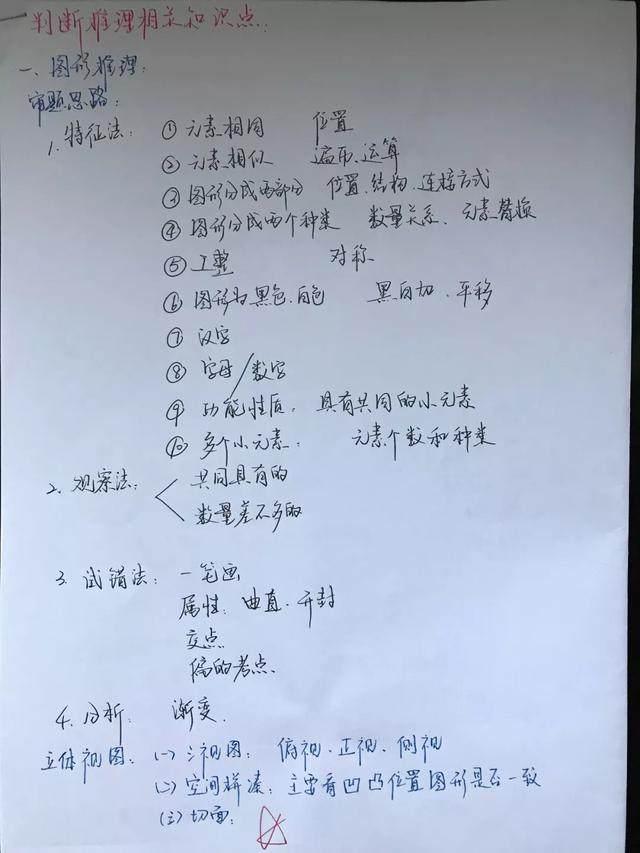 判断推理相关知识点.
一、图形推理:
审题思路:
1. 特征法: ① 元素相同 位置
② 元素相似 遍历、运算
③ 图形分成两部分 位置、结构、连接方式
④ 图形分成两个种类 数量关系、元素替换
⑤ 工整 对称
⑥ 图形为黑色、白色 黑白加、平移
⑦ 汉字
⑧ 字母/数字
⑨ 功能性质, 具有共同的小元素
⑩ 多个小元素: 元素个数和种类
2. 观察法: 共同具有的
数量差不多的
3. 试错法: 一笔画
属性: 曲直、开封
交点
偏的考点
4. 分析: 渐变.
立体视图: (一) 三视图: 俯视、正视、侧视
(二) 空间拼凑: 主要看凹凸位置图形是否一致
(三) 切面: